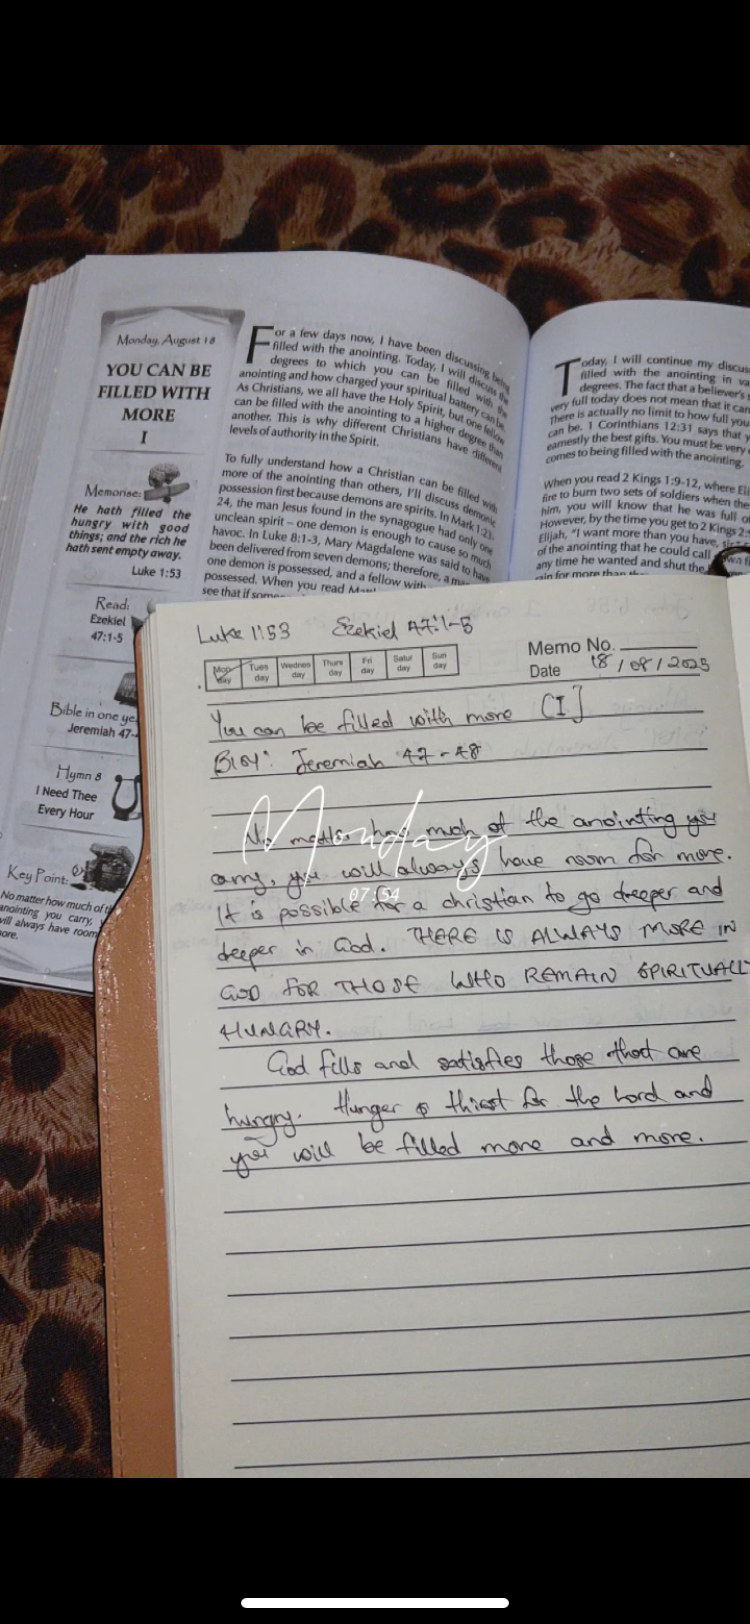 Monday, August 18
YOU CAN BE
FILLED WITH
MORE
I
Memorise:
He hath filled the
hungry with good
things; and the rich he
hath sent empty away.
Luke 1:53
Read:
Ezekiel
47:1-5
Bible in one ye
Jeremiah 47-
Hymn 8
I Need Thee
Every Hour
Key Point:
No matter how much of th
anointing you carry,
will always have room
ore.
For a few days now, I have been discussing being
filled with the anointing. Today, I will discuss the
degrees to which you can be filled with the
anointing and how charged your spiritual battery can be.
As Christians, we all have the Holy Spirit, but one fellow
can be filled with the anointing to a higher degree than
another. This is why different Christians have different
levels of authority in the Spirit.
To fully understand how a Christian can be filled with
more of the anointing than others, I'll discuss demonic
possession first because demons are spirits. In Mark 1:23-
24, the man Jesus found in the synagogue had only one
unclean spirit – one demon is enough to cause so much
havoc. In Luke 8:1-3, Mary Magdalene was said to have
been delivered from seven demons; therefore, a man
one demon is possessed, and a fellow with
possessed. When you read
see that if
Today, I will continue my discus
filled with the anointing in va
degrees. The fact that a believer's
very full today does not mean that it can
There is actually no limit to how full you
can be. 1 Corinthians 12:31 says that y
earnestly the best gifts. You must be very
comes to being filled with the anointing.
When you read 2 Kings 1:9-12, where Eli
fire to burn two sets of soldiers when the
him, you will know that he was full o
However, by the time you get to 2 Kings 2:
Elijah, "I want more than you have, sir
of the anointing that he could call
any time he wanted and shut the
for more than
Luke 1:53 Ezekiel 47:1-5
Mon day Tues day Wednes day Thurs day Fri day Satur day Sun day
Memo No.
Date 18/08/2025
You can be filled with more [I]
BIOY: Jeremiah 47-48
Monday
07:54
No matter how much of the anointing you
carry, you will always have room for more.
It is possible for a christian to go deeper and
deeper in God. THERE IS ALWAYS MORE IN
GOD FOR THOSE WHO REMAIN SPIRITUALLY
HUNGRY.
God fills and satisfies those that are
hungry. Hunger & thirst for the Lord and
you will be filled more and more.